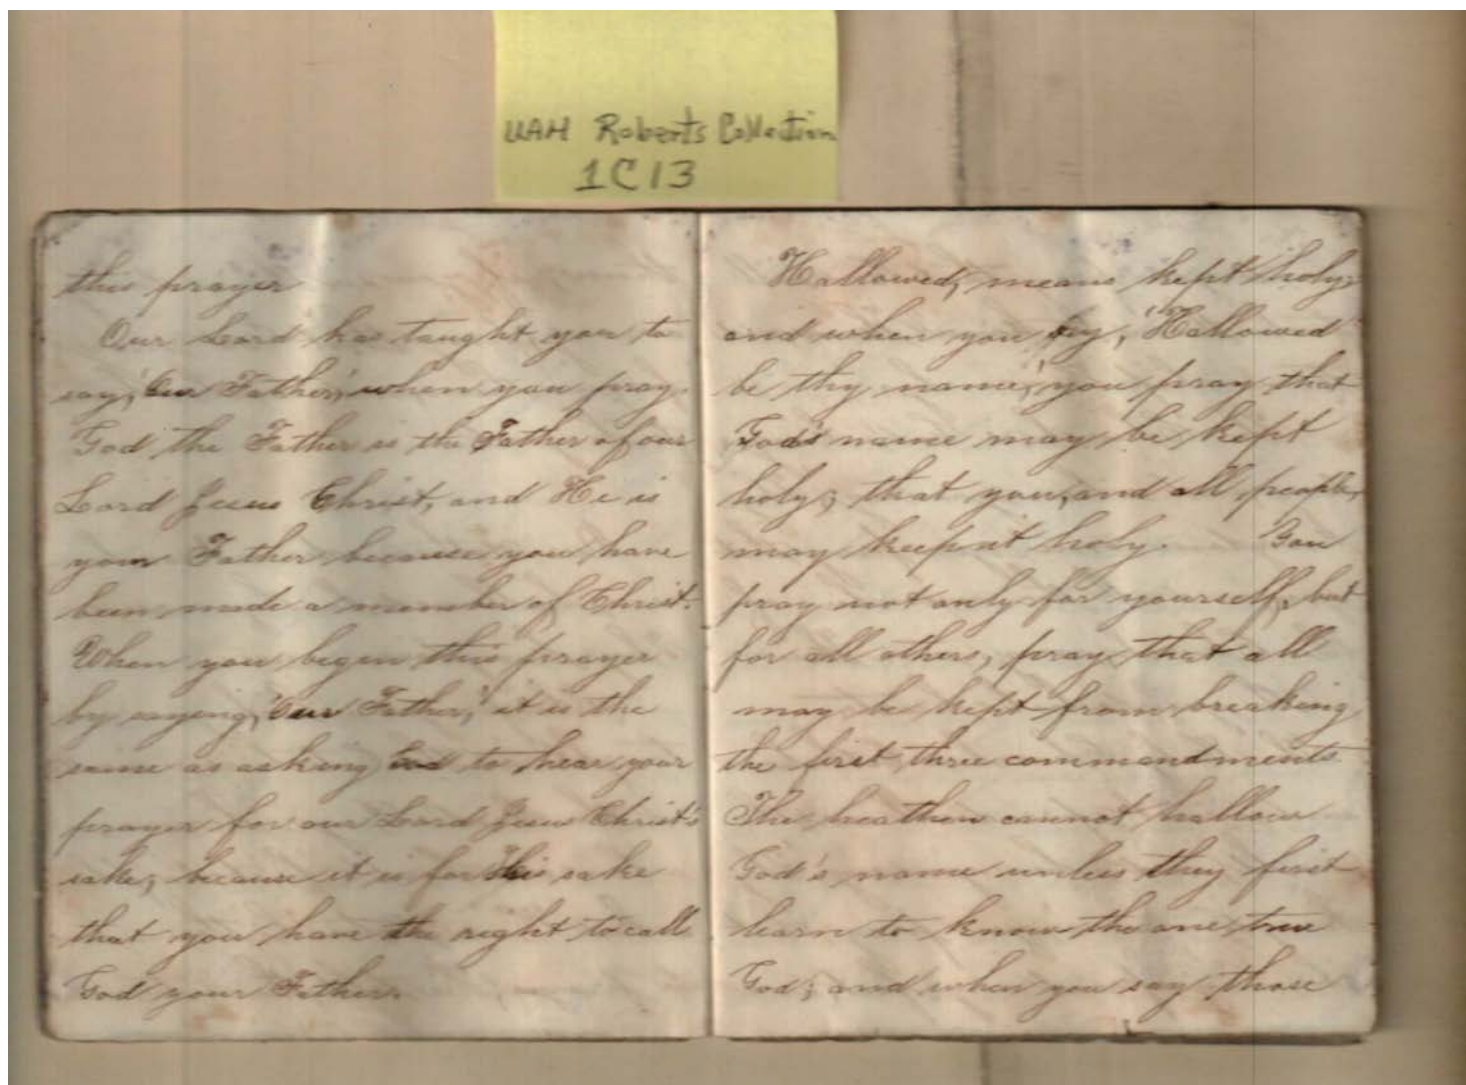 UAH Roberts Collection
1C13
this prayer
Our Lord has taught you to
say, 'Our Father,' when you pray.
God the Father is the Father of our
Lord Jesus Christ, and He is
your Father because you have
been made a member of Christ.
When you begin this prayer
by saying, 'Our Father,' it is the
same as asking God to hear your
prayer for our Lord Jesus Christ's
sake; because it is for His sake
that you have the right to call
God your Father.
Hallowed, means kept holy;
and when you say, 'Hallowed
be thy name,' you pray that
God's name may be kept
holy; that you, and all people,
may keep it holy. You
pray not only for yourself, but
for all others, pray that all
may be kept from breaking
the first three commandments
The heathen cannot hallow
God's name unless they first
learn to know the one true
God; and when you say those